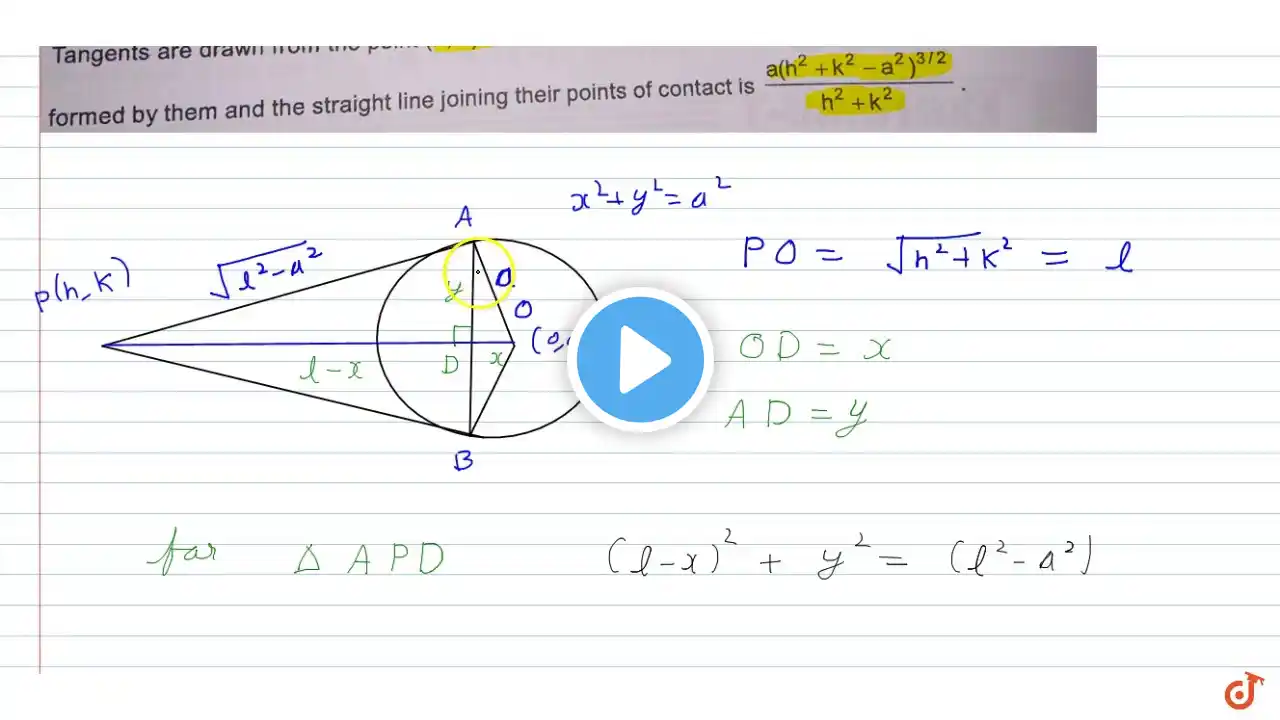 Tangents are drawn from the point
formed by them and the straight line joining their points of contact is a(h² + k² − a²)^3/2 / h² + k² .
x² + y² = a²
A
PO = √h² + k² = l
√l² − a²
P(h, k)
y
a
O
(0,
OD = x
D
x
l − x
AD = y
B
for Δ APD (l − x)² + y² = (l² − a²)